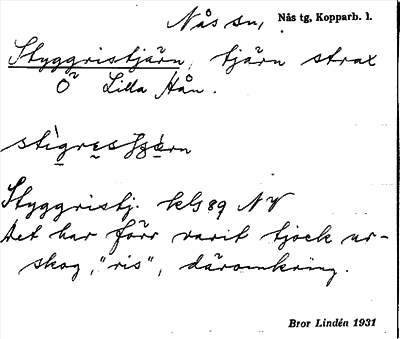 Nås sn, Nås tg, Kopparb. l.
Styggristjärn, tjärn strax
Ö Lilla Hån.
Styggristj. kbl 89 NV
det har förr varit tjock ur-
skog, "ris", däromkring.
Bror Lindén 1931